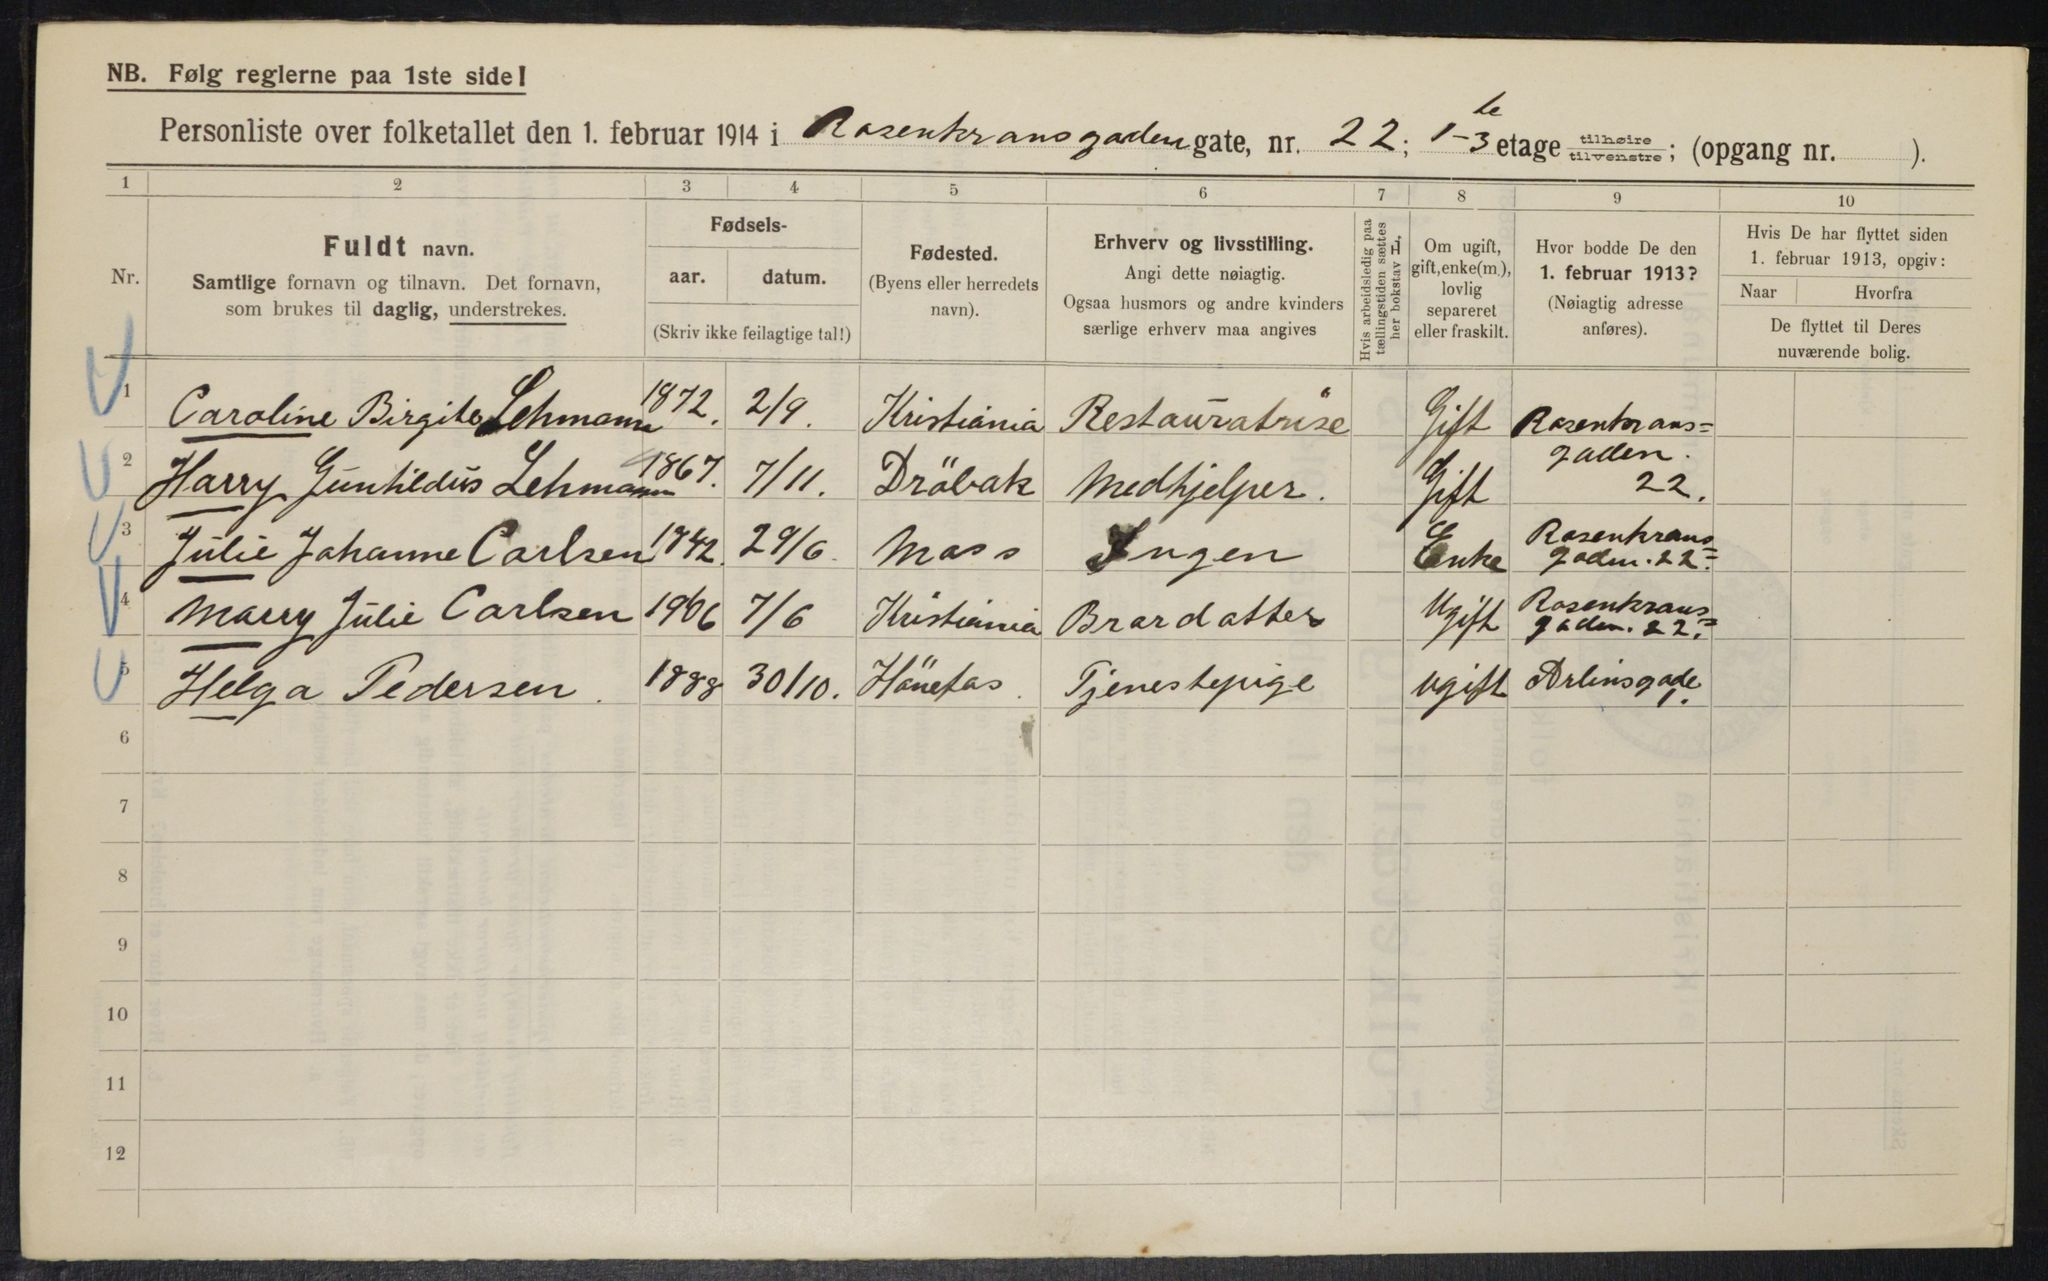 NB. Følg reglerne paa 1ste side!
Personliste over folketallet den 1. februar 1914 i Rosenkransgaden gate, nr. 22; 1-3 te etage tilhøire tilvenstre; (opgang nr. ).
1 2 3 4 5 6 7 8 9 10
Nr.
Fuldt navn.
Samtlige fornavn og tilnavn. Det fornavn,
som brukes til daglig, understrekes.
Fødsels-
aar. datum.
(Skriv ikke feilagtige tal!)
Fødested.
(Byens eller herredets
navn).
Erhverv og livsstilling.
Angi dette nøiagtig.
Ogsaa husmors og andre kvinders
særlige erhverv maa angives
Hvis arbeidsledig paa
tællingstiden sættes
her bokstav L.
Om ugift,
gift, enke(m.),
lovlig
separeret
eller fraskilt.
Hvor bodde De den
1. februar 1913?
(Nøiagtig adresse
anføres).
Hvis De har flyttet siden
1. februar 1913, opgiv:
Naar Hvorfra
De flyttet til Deres
nuværende bolig.
1 Caroline Birgite Lehmann 1872. 2/9. Kristiania Restauratrise Gift Rosenkrans=
gaden.
2 Harry Gunhildus Lehmann 1867. 7/11. Dröbak Medhjelper. Gift 22.
3 Julie Johanne Carlsen 1842. 29/6. Moss Ingen Enke Rosenkrans=
gaden. 22.
4 Marry Julie Carlsen 1906 7/6 Kristiania Brordatter Ugift Rosenkrans=
gaden. 22.
5 Helga Pedersen. 1888 30/10. Hönefos. Tjenestepige Ugift
1.
6
7
8
9
10
11
12